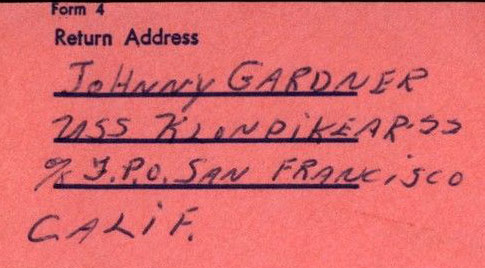 Form 4
Return Address
JOHNNY GARDNER
USS KLONDIKE AR-22
℅ F.P.O. SAN FRANCISCO
CALIF.